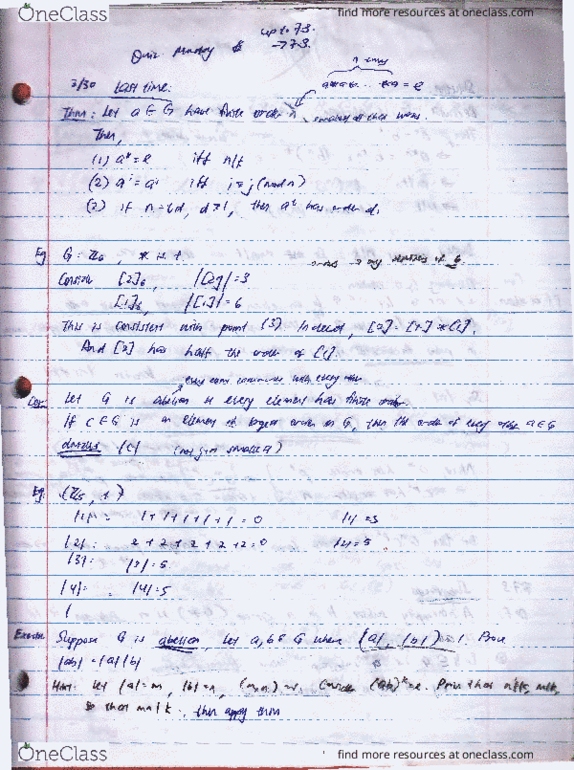 OneClass
find more resources at oneclass.com
up to 7.3.
→ 7.3.
Quiz
n times
3/30 Last time:
= e
Thm: Let a ∈ G have finite order n, smallest that works.
Then,
(1) a^k = e iff n|k
(2) a^i = a^j iff i ≡ j (mod n)
(3) if n = td, d ≥ 1, then a^t has order d.
Eg G = Z6, * is +
Consider [2]6, |[2]| = 3
[1]6, |[1]| = 6
This is consistent with point (3) Indeed, [2] = [1] * [1].
And [2] has half the order of [1].
every elem commutes with every
Cor: Let G is abelian & every element has finite order
If c ∈ G is an element of largest order in G, then the order of every other a ∈ G
divides |c| (not just smaller)
Eg. (Z5, +)
|1|: 1+1+1+1+1 = 0 |1| = 5
|2|: 2+2+2+2+2 = 0 |2| = 5
|3|: |3| = 5
|4|: |4| = 5
Exercise Suppose G is abelian, let a, b ∈ G where (|a|, |b|) = 1. Prove
|ab| = |a||b|
Hint: Let |a| = m, |b| = n, (m,n) = 1, Consider (ab)^k = e. Prove that n|k, m|k,
so that mn|k, then apply thm
OneClass
find more resources at oneclass.com